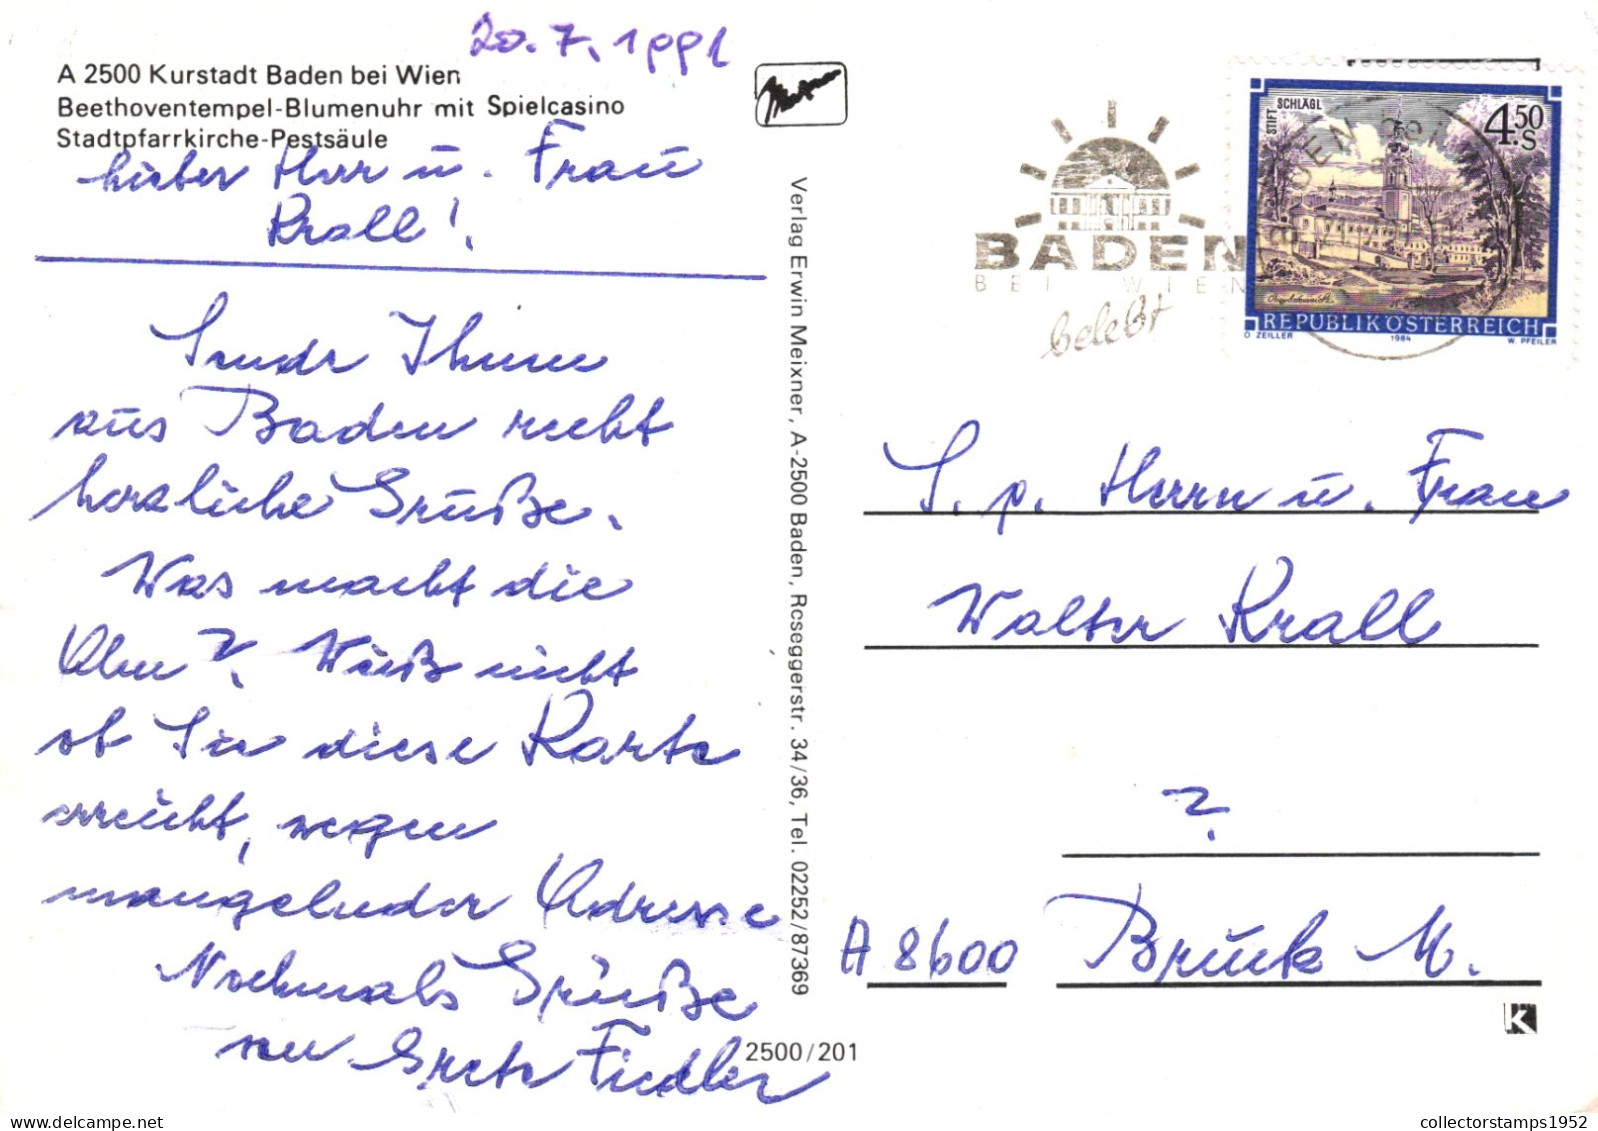 20. 7. 1991
A 2500 Kurstadt Baden bei Wien
Beethoventempel-Blumenuhr mit Spielcasino
Stadtpfarrkirche-Pestsäule
Lieber Herr u. Frau
Krall!
Sende Ihnen
aus Baden recht
herzliche Grüße.
Was macht die
Oma? Weiß nicht
ob Sie diese Karte
erreicht, wegen
mangelnder Adresse
Nochmals Grüße
von Grete Fiedler
Verlag Erwin Meixner, A-2500 Baden, Roseggerstr. 34/36, Tel. 02252/87369
2500/201
BADEN
BEI WIEN
belebt
STIFT SCHLÄGL
4.50 S
REPUBLIK ÖSTERREICH
O. ZEILLER 1984 W. PFEILER
S. p. Herrn u. Frau
Walter Krall
?
A 8600 Bruck M.
K
collectorstamps1952